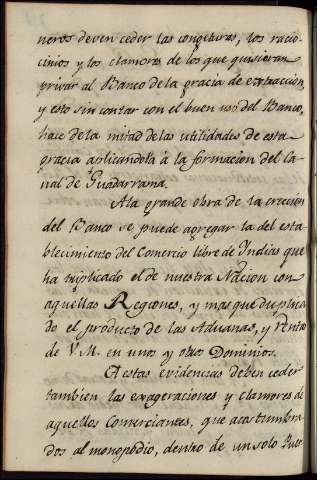 neros deven ceder las congeturas, los racio-
cinios y los clamores de los que quisieran
privar al Banco de la gracia de extraccion,
y esto sin contar con el buen uso, del Banco,
hace de la mitad de las utilidades de esta
gracia aplicandola à la formacion del Ca-
nal de Guadarrama.
A la grande obra de la ereccion
del Banco se puede agregar la del esta-
blecimiento del Comercio libre de Indias que
ha triplicado el de nuestra Nacion con
aquellas Regiones, y mas que duplica-
do el producto de las Aduanas, y rentas
de V. M. en unos y otros Dominios.
A estas evidencias deben ceder
tambien las exageraciones y clamores de
aquellos Comerciantes, que acostumbra-
dos al monopodio, dentro de un solo Puer-